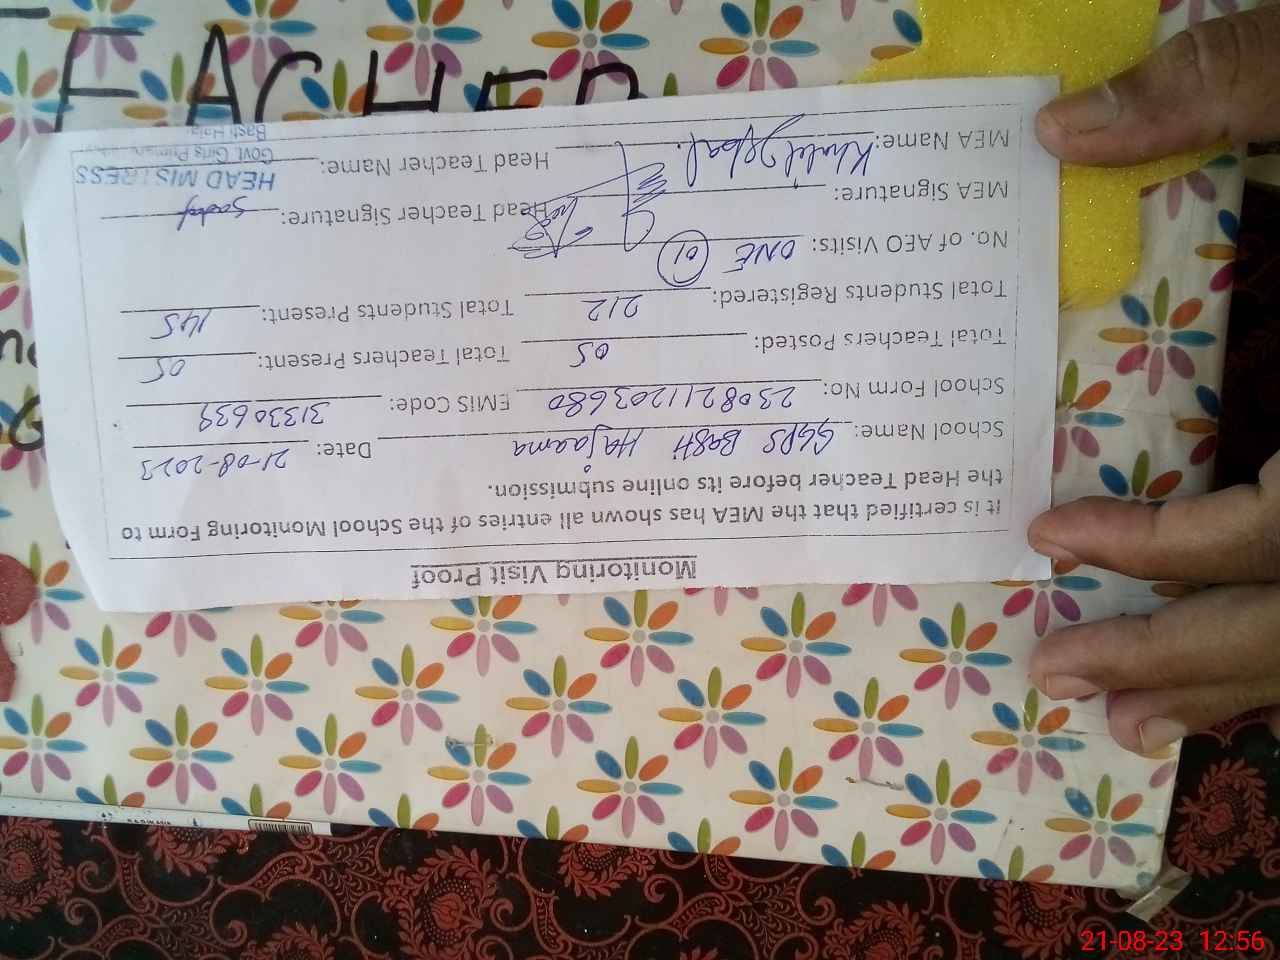 Monitoring Visit Proof
It is certified that the MEA has shown all entries of the School Monitoring Form to
the Head Teacher before its online submission.
School Name: GGPS BASti Hajaama Date: 21-08-2023
School Form No: 2308211203680 EMIS Code: 31330639
Total Teachers Posted: 05 Total Teachers Present: 05
Total Students Registered: 212 Total Students Present: 145
No. of AEO Visits: ONE 01
MEA Signature: Head Teacher Signature:
MEA Name: Khalid Iqbal. Head Teacher Name:
HEAD MISTRESS
Govt. Girls Primary
Basti Haja
EACHER
21-08-23 12:56